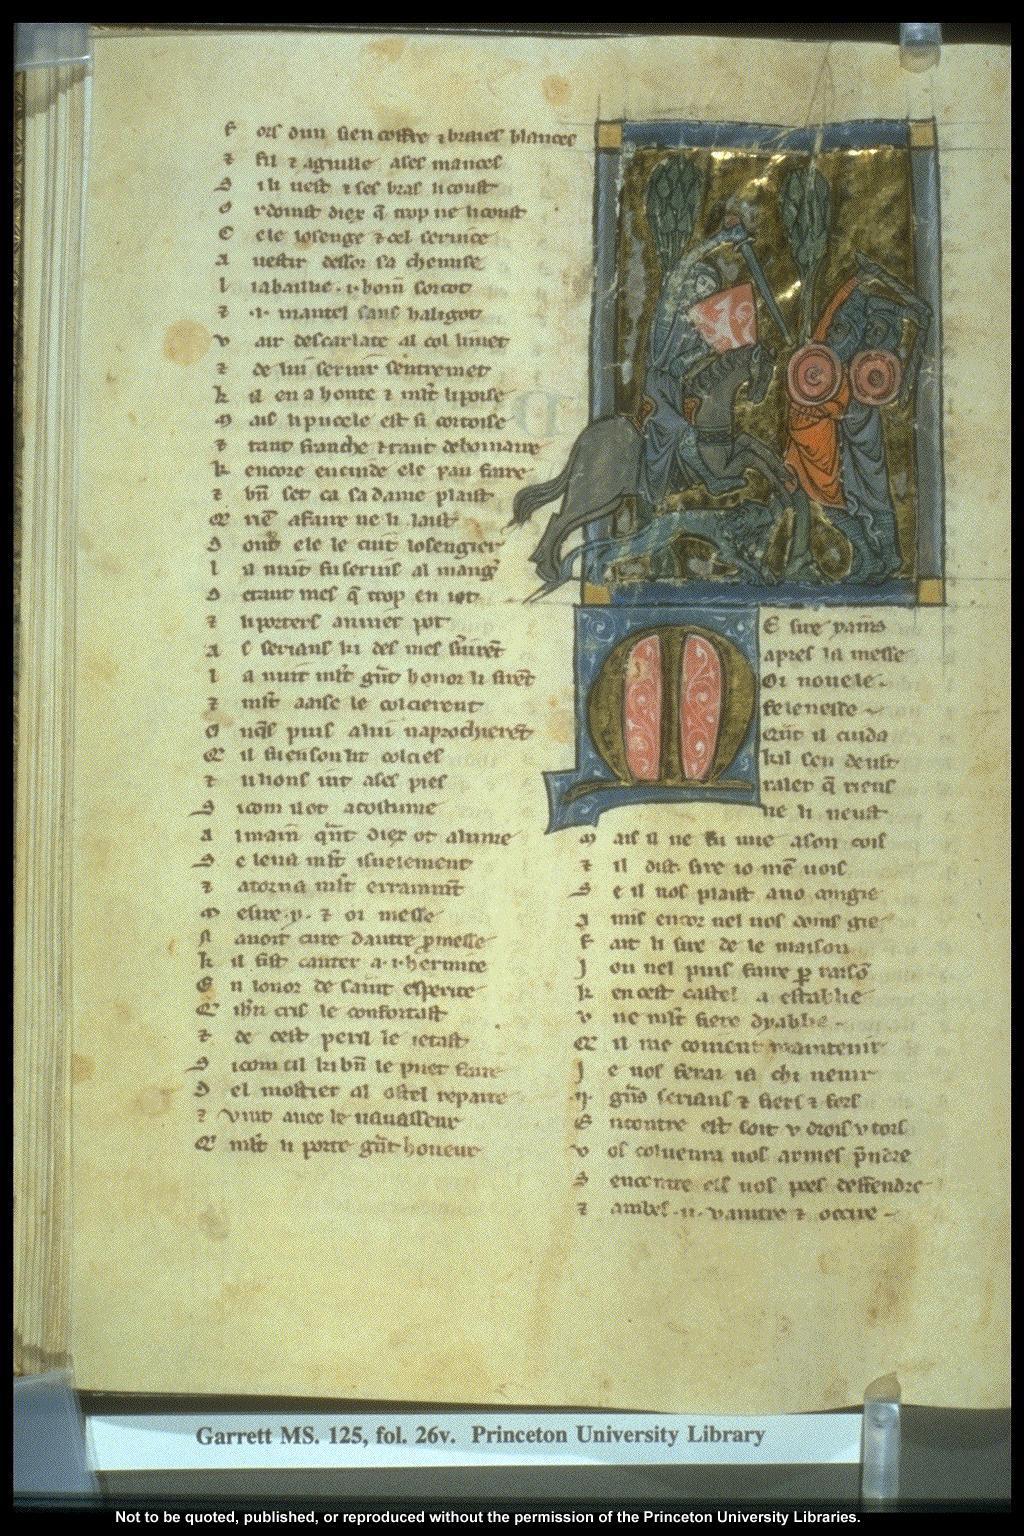 F ors dun sien coffre ⁊ braies blances
⁊ fil ⁊ aguille a ses mances
S i li uest ⁊ ses bras li coust
O r doinst diex q̃ trop ne li coust
C ele losenge ⁊ cel seruice
A uestir desor sa chemise
L i a baillie .i. boin sorcot
⁊ .i. mantel sans harigot
V air descarlate al col li met
⁊ de lui seruir sentremet
K il en a honte ⁊ ml't li poise
M ais li pucele est si cortoise
⁊ tant franche ⁊ tant debonaire
K encore en cuide ele pau faire
⁊ bñ set ca sa dame plaist
Q̃ riẽ a faire ne li laist
D ont ele le cuit losengier
L a nuit fu seruis al mang'
D e tant mes q̃ trop en i ot
⁊ li porters anuier pot
A s serians ki des mes s'uirẽt
L a nuit ml't gñt honor li firẽt
⁊ ml't aaise le colcierent
O nq̃s puis a lui naprochierẽt
Q' il fu en son lit colcies
⁊ li lions iut a ses pies
S i com il ot acostume
A l main q̃nt diex ot alume
S e leua ml't isnelement
⁊ atorna ml't erramm̃t
Mesire .y. ⁊ oi messe
N auoit cure dautre pmesse
K il fist canter a .i. hermite
E n lonor de saint esperite
Q' ihũ cris le confortast
⁊ de cest peril le ietast
S i com cil ki bñ le puet faire
D el mostier al ostel repaire
⁊ vint auec le uauasseur
Q' ml't li porte gñt honeur
M E sire yains
apres la messe
Oi nouele
felenesse
Q̃nt il cuida
kil sen deust
raler q̃ riens
ne li neust
M ais il ne fu mie a son cois
⁊ il dist sire io mẽ uois
S e il uos plaist a uo congie
A mis encor nel uos doins gie
F ait li sire de le maison
J ou nel puis faire p raisõ
K en cest castel a establie
V ne ml't fiere dyablie
Q' il me couient maintenir
J e uos ferai ia chi uenir
.ij. grñs serians ⁊ fiers ⁊ fors
E ncontre els soit v drois v tors
V os couenra uos armes p̃ndre
S encontre els uos poes desfendre
⁊ ambes .ii. vaintre ⁊ occire
Garrett MS. 125, fol. 26v. Princeton University Library
Not to be quoted, published, or reproduced without the permission of the Princeton University Libraries.